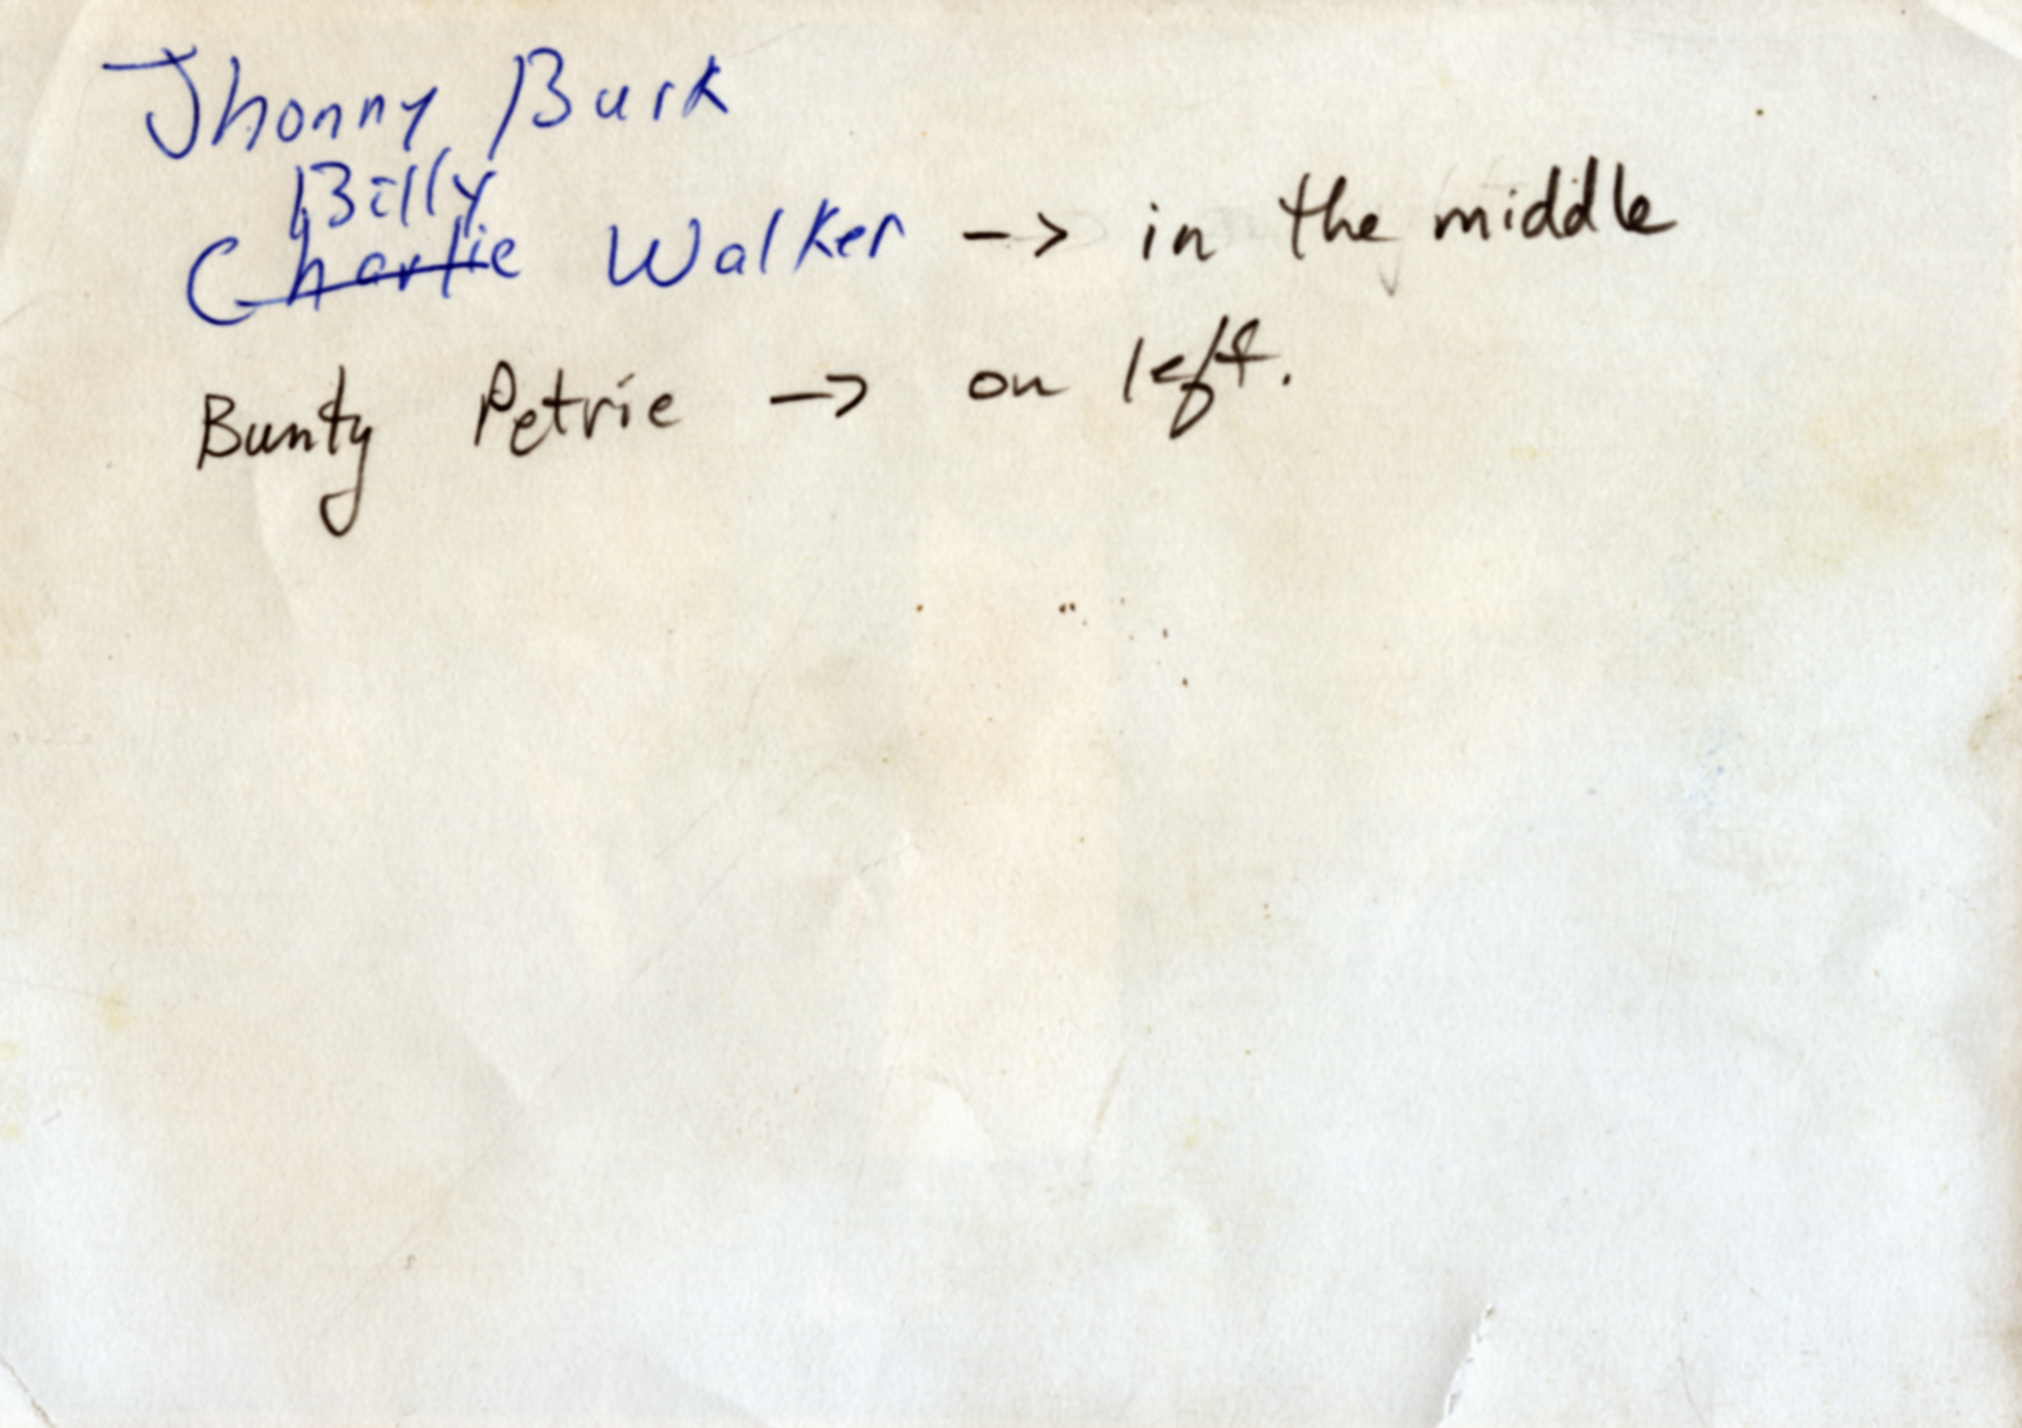 Jhonny Burk
Billy
Charlie Walker -> in the middle
Bunty Petrie -> on left.